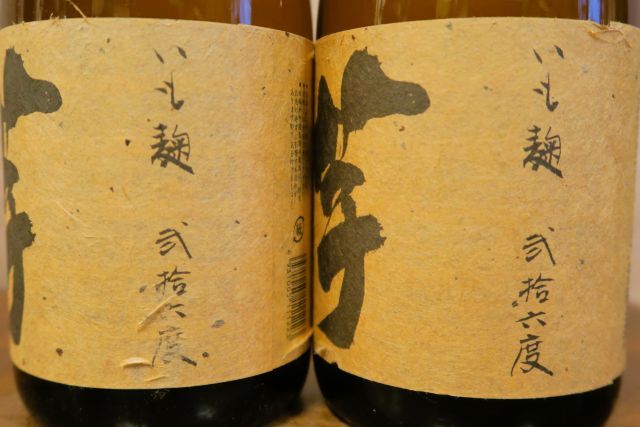 いも麹 弐拾六度
芋
いも麹 弐拾六度
芋